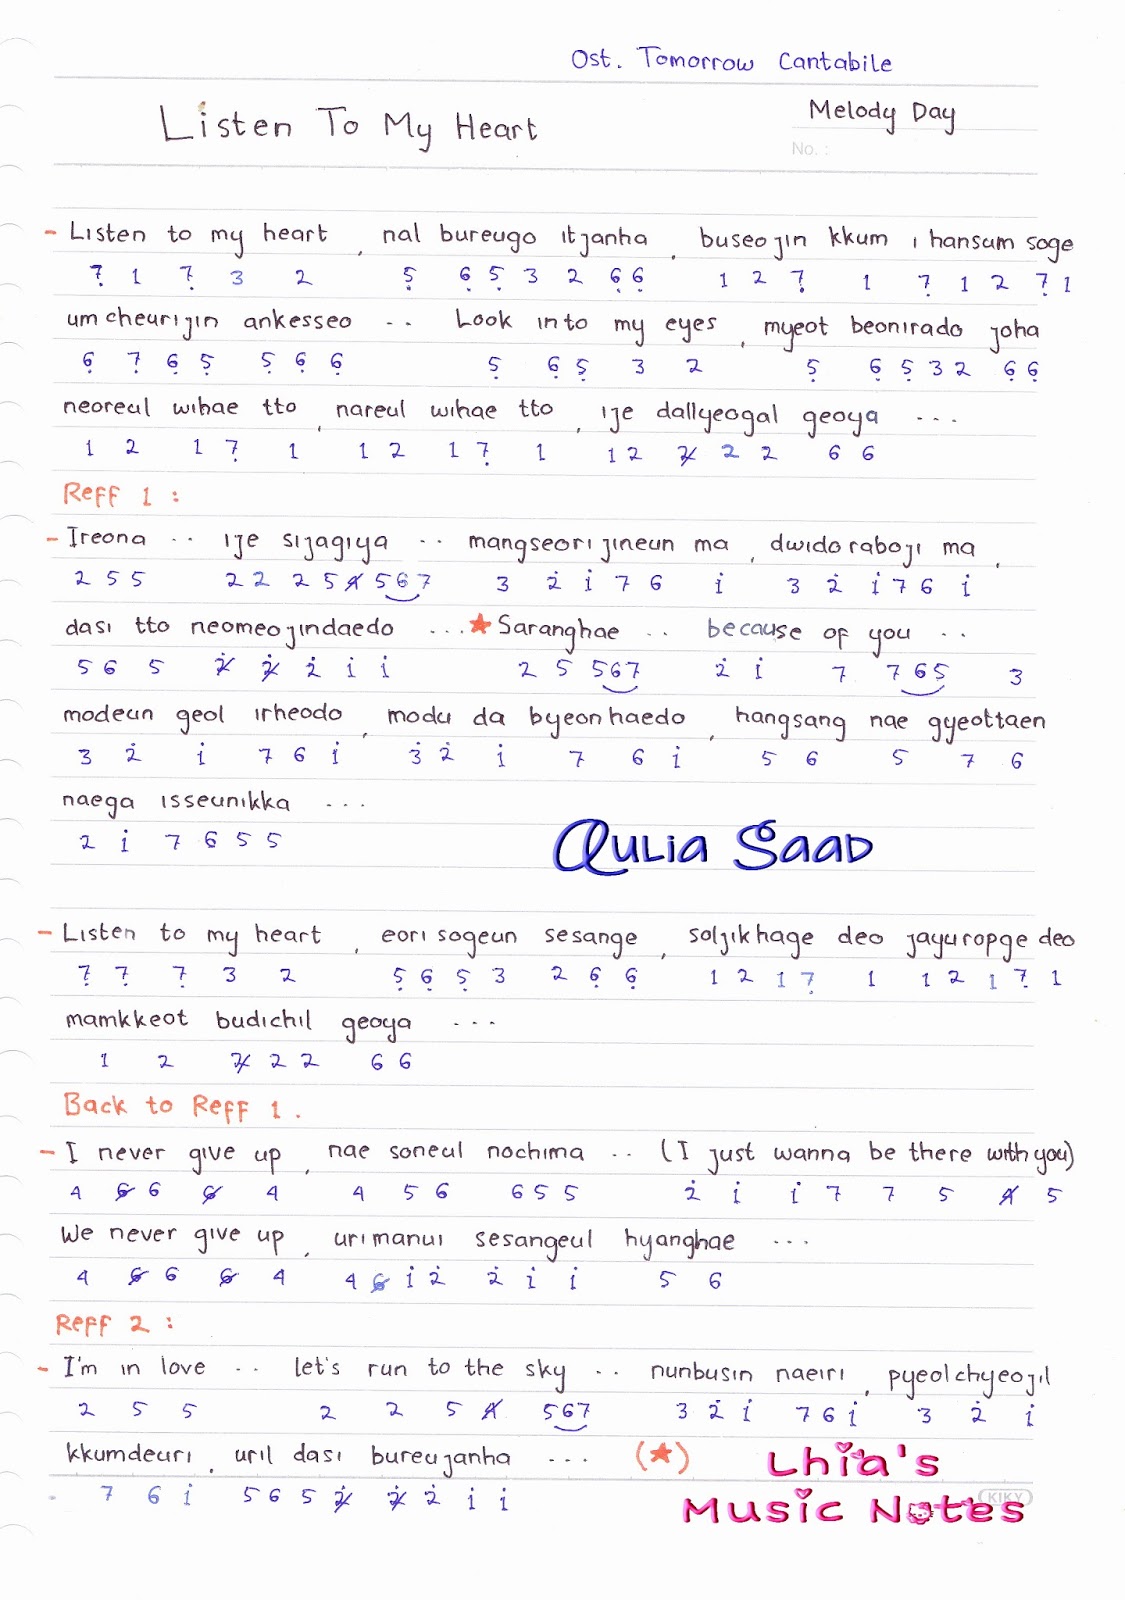 Ost. Tomorrow Cantabile
Listen To My Heart
Melody Day
No. :
- Listen to my heart , nal bureugo itjanha , buseojin kkum i hansum soge
7̣ 1 7̣ 3 2 5̣ 6̣ 5̣ 3 2 6̣ 6̣ 1 2 7̣ 1 7̣ 1 2 7̣ 1
umcheurijin ankesseo .. Look into my eyes , myeot beonirado joha
6̣ 7̣ 6̣ 5̣ 5̣ 6̣ 6̣ 5̣ 6̣ 5̣ 3 2 5̣ 6̣ 5̣ 3 2 6̣ 6̣
neoreul wihae tto , nareul wihae tto , ije dallyeogal geoya ...
1 2 1 7̣ 1 1 2 1 7̣ 1 1 2 2̸ 2 2 6 6
Reff 1 :
- Ireona .. ije sijagiya .. mangseorijineun ma , dwidoraboji ma ,
2 5 5 2 2 2 5 4̸ 5 6 7 3 2̇ i 7 6 i 3 2̇ i 7 6 i
dasi tto neomeojindaedo ... ★ Saranghae .. because of you ..
5 6 5 2̸̇ 2̸̇ 2̇ i i 2 5 567 2̇ i 7 7 6 5 3
modeun geol irheodo , modu da byeonhaedo , hangsang nae gyeottaen
3 2̇ i 7 6 i 3̇ 2̇ i 7 6 i 5 6 5 7 6
naega isseunikka ...
2 i 7 6 5 5
Qulia Saad
- Listen to my heart , eori sogeun sesange , soljikhage deo jayuropge deo
7̣ 7̣ 7̣ 3 2 5̣ 6̣ 5̣ 3 2 6̣ 6̣ 1 2 1 7̣ 1 1 2 1 7̣ 1
mamkkeot budichil geoya ...
1 2 2̸ 2 2 6 6
Back to Reff 1 .
- I never give up , nae soneul nochima .. (I just wanna be there with you)
4 6̸ 6 6̸ 4 4 5 6 6 5 5 2̇ i i 7 7 5 4̸ 5
We never give up , urimanui sesangeul hyanghae ...
4 6̸ 6 6̸ 4 4 6̸ i 2̇ 2̇ i i 5 6
Reff 2 :
- I'm in love .. let's run to the sky .. nunbusin naeiri , pyeolchyeojil
2 5 5 2 2 5 4̸ 567 3 2̇ i 7 6 i 3 2̇ i
kkumdeuri , uril dasi bureujanha ... (★)
7 6 i 5 6 5 2̸̇ 2̸̇ 2̇ i i
Lhia's
Music Notes
KIKY